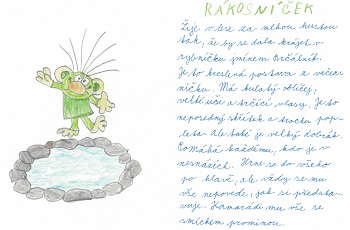 RÁKOSNÍČEK
Žije v lese za mlhou hustou
tak, že by se dala krájet v
rybníčku jménem Brčálník.
Je to kreslená postava z večer
níčku. Má kulatý obličej,
velké uši a trčící vlasy. Je to
neposedný skřítek a trochu pop-
leta ale také je velký dobrák.
Pomáhá každému, kdo je v
nesnázích. Hrne se do všeho
po hlavě, ale vždy se mu
vše nepovede, jak si předsta-
vuje. Kamarádi mu vše se
smíchem prominou.